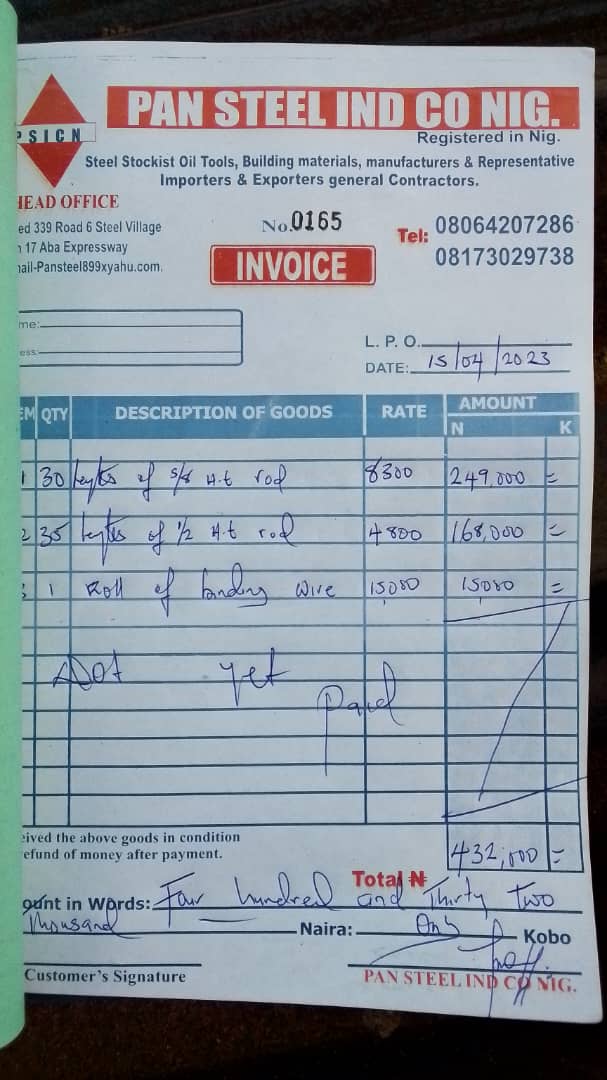 PAN STEEL IND CO NIG.
PSICN
Registered in Nig.
Steel Stockist Oil Tools, Building materials, manufacturers & Representative
Importers & Exporters general Contractors.
HEAD OFFICE
ed 339 Road 6 Steel Village
17 Aba Expressway
ail-Pansteel899xyahu.com.
No.0165
INVOICE
Tel: 08064207286
08173029738
me:
ess:
L. P. O.
DATE: 15/04/2023
EM QTY DESCRIPTION OF GOODS RATE AMOUNT
N K
1 30 of 5/8 H.t rod 8300 249,000 =
2 35 of 1/2 H.t rod 4800 168,000 =
1 Roll of binding wire 15,000 15,000 =
Not yet
Paid
eived the above goods in condition
efund of money after payment.
432,000 =
Total ₦
ount in Words: Four hundred and Thirty Two
Thousand Naira: Only Kobo
Customer's Signature
PAN STEEL IND CO NIG.